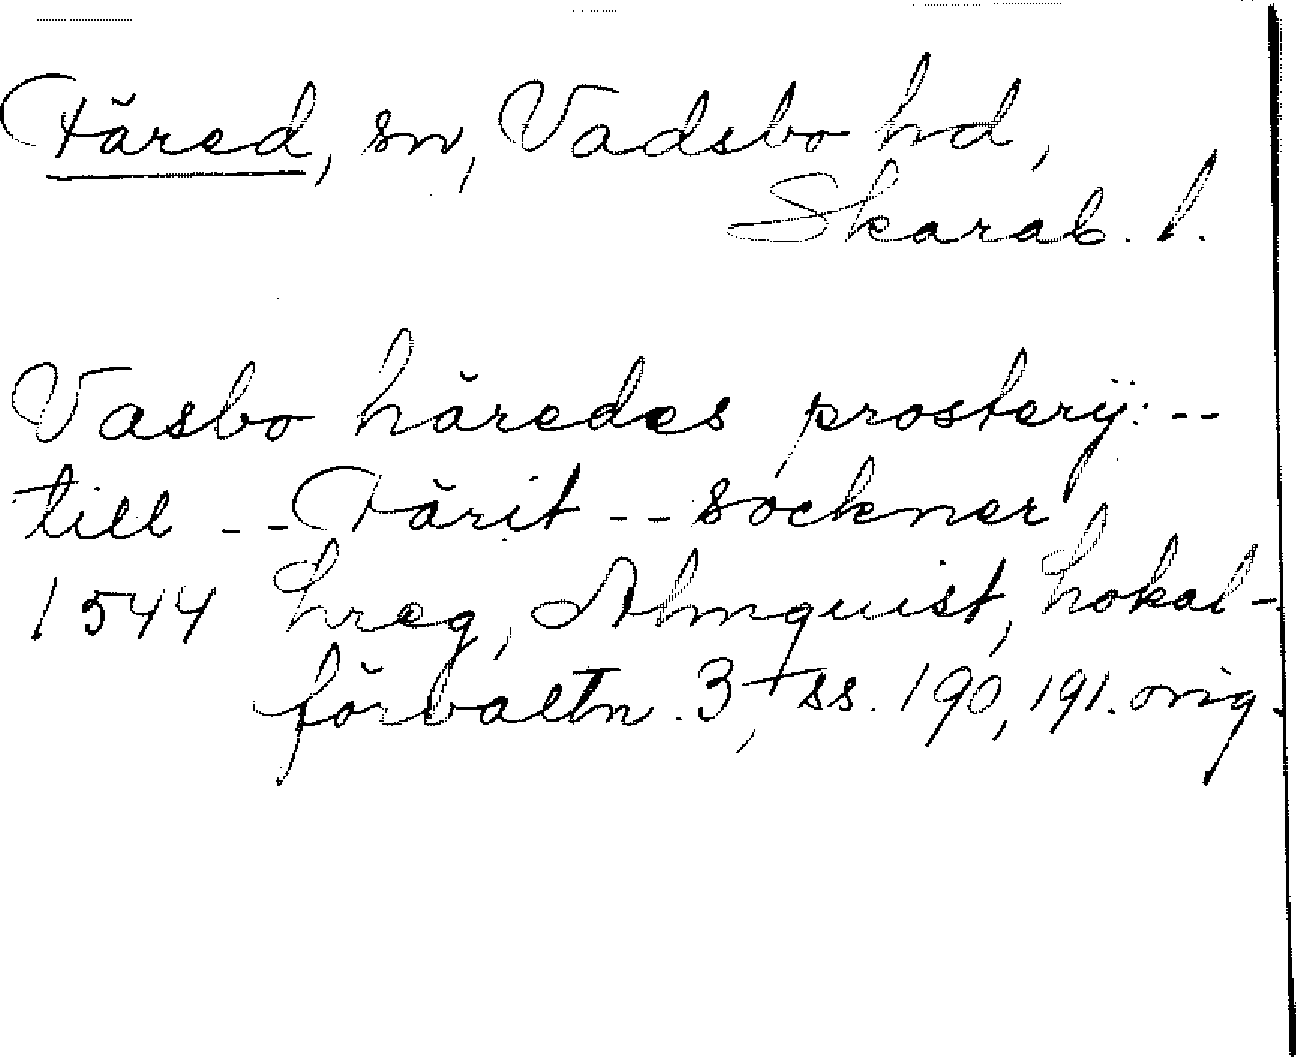 Färed, sn, Vadsbo hd,
Skarab. l.
Vasbo häredes prosterÿ: --
till -- Färit -- sockner
1544 Lreg, Almquist, Lokal-
förvaltn. 3, ss. 190, 191. orig.